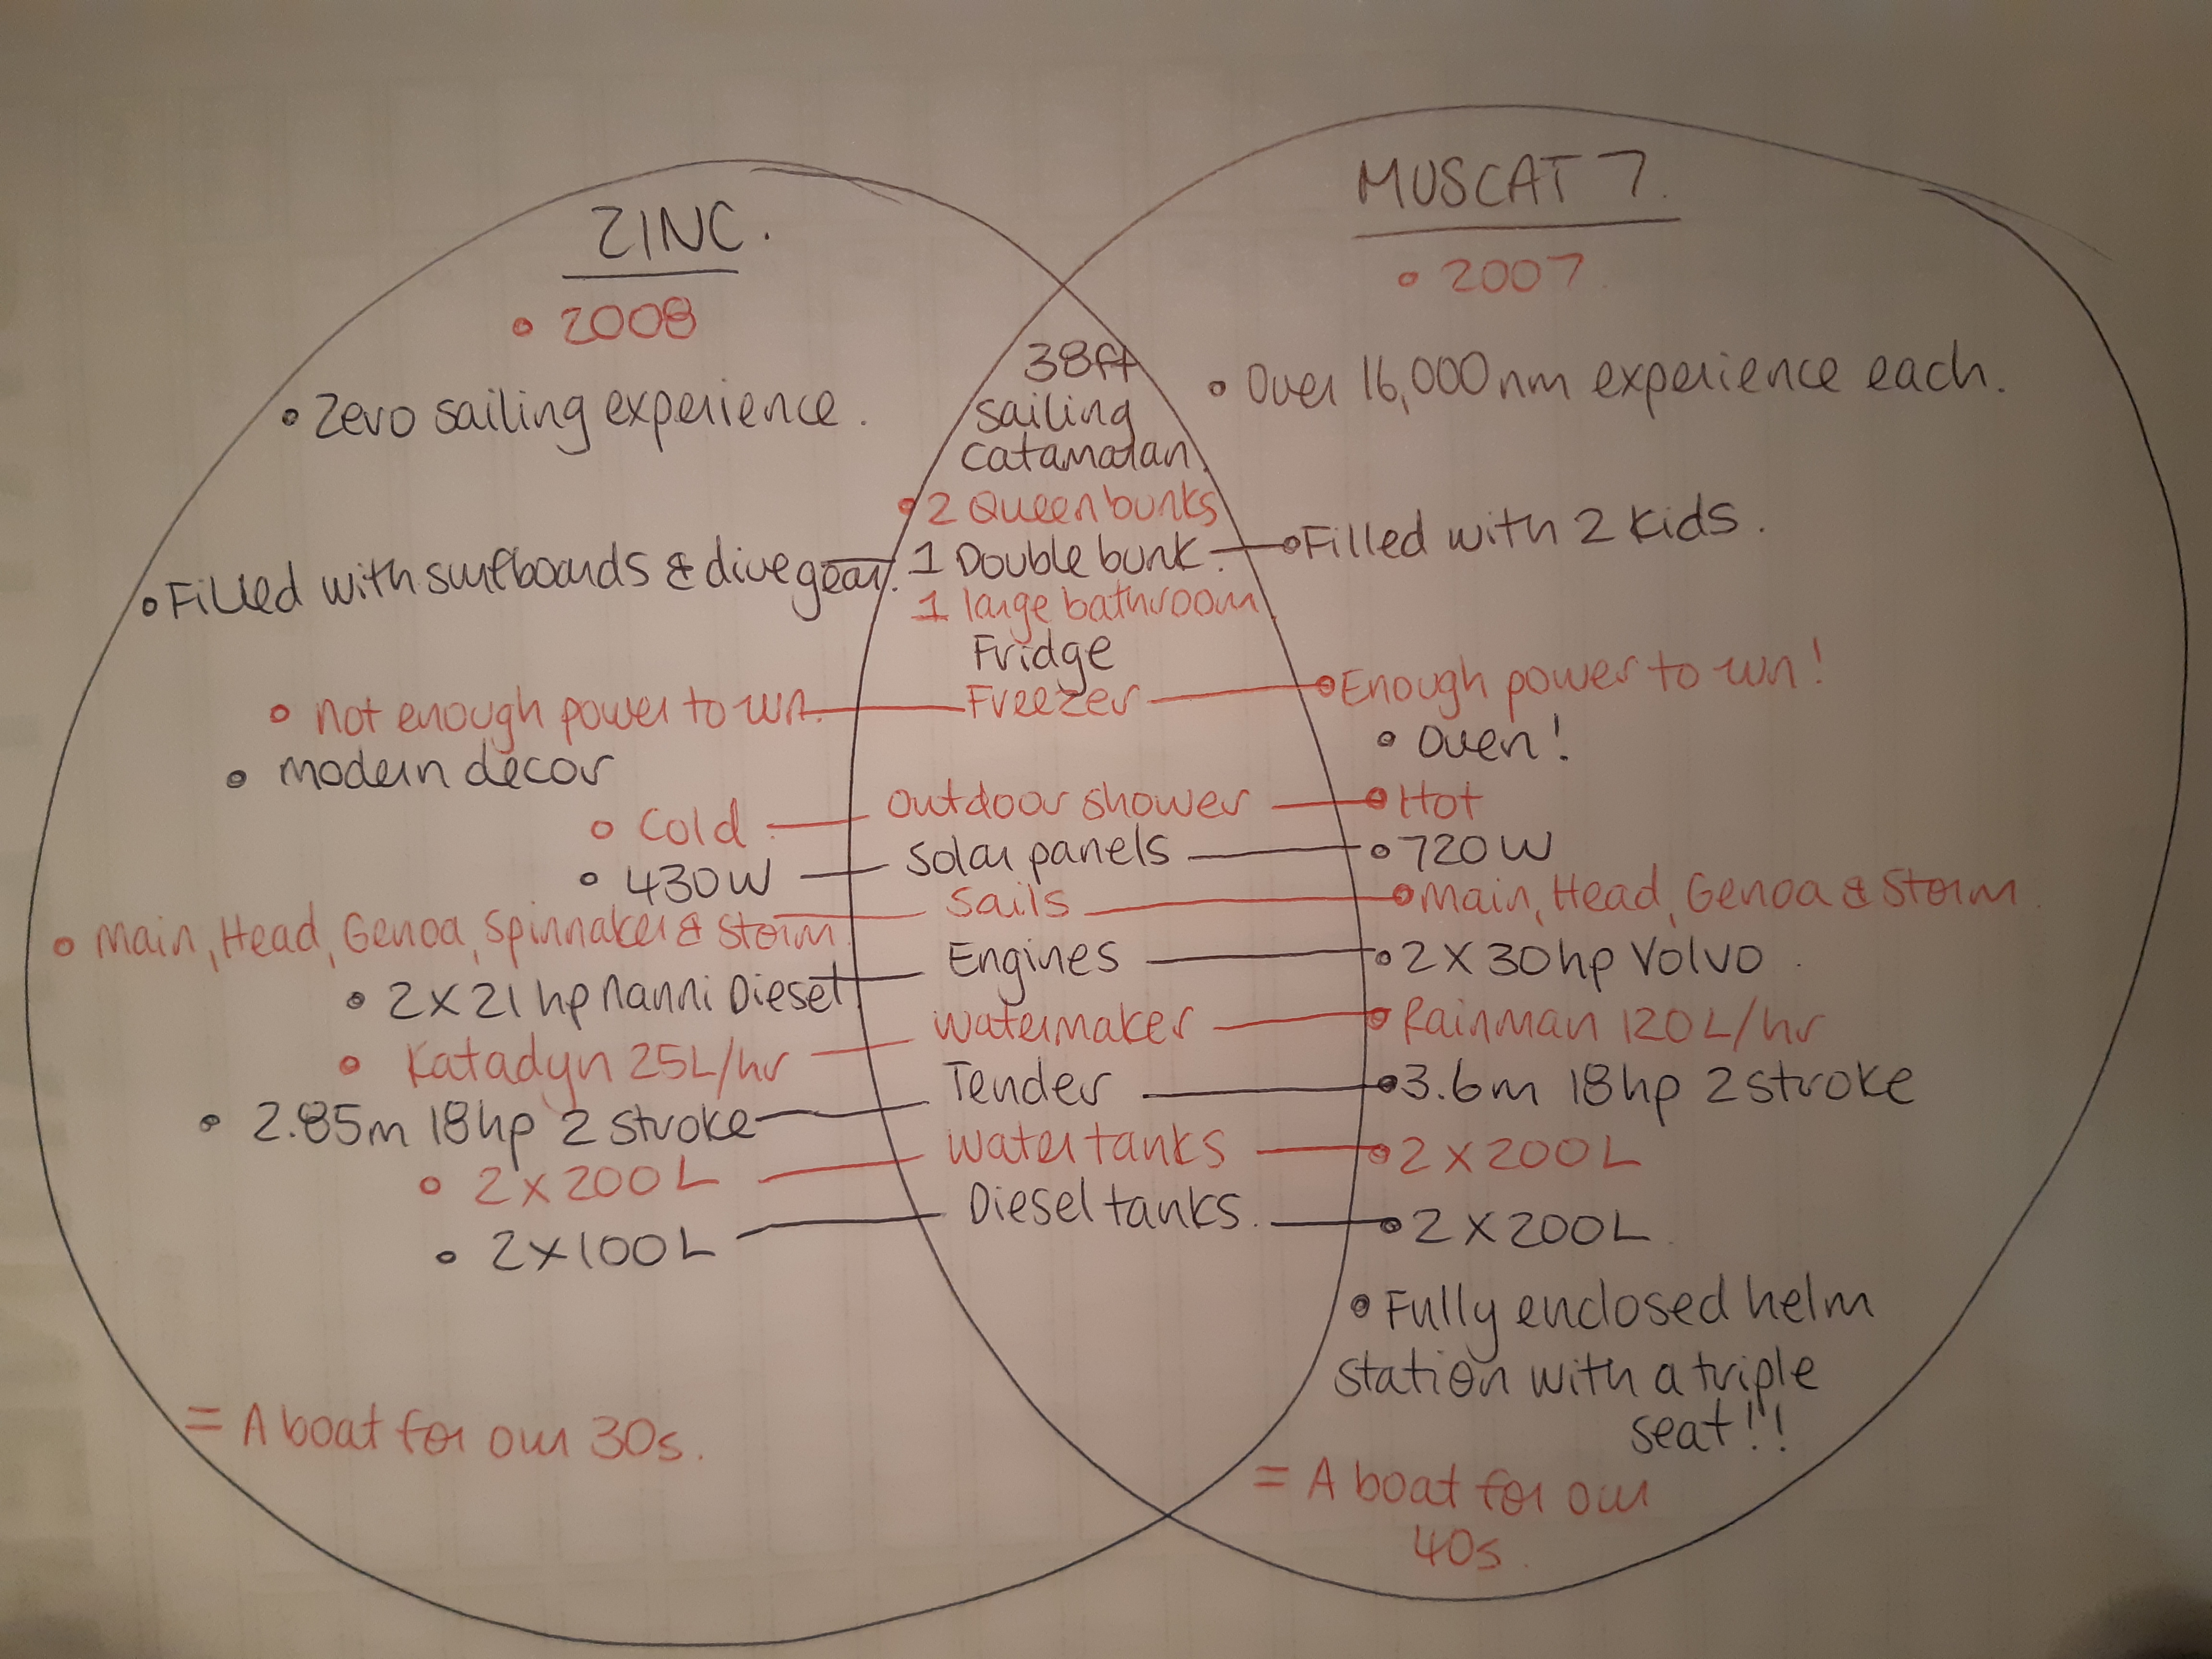 ZINC.
• 2008
• Zero sailing experience.
• Filled with surfboards & dive gear.
• not enough power to run.
• modern decor
• Cold
• 430W
• Main, Head, Genoa, Spinnaker & Storm.
• 2 X 21hp Nanni Diesel.
• Katadyn 25L/hr
• 2.85m 18hp 2 stroke
• 2 x 200L
• 2 x 100L
= A boat for our 30s.
38ft
Sailing
Catamaran.
• 2 Queen bunks
1 Double bunk.
1 large bathroom
Fridge
Freezer
Outdoor shower
Solar panels
Sails
Engines
Watermaker
Tender
Water tanks
Diesel tanks.
MUSCAT 7.
• 2007
• Over 16,000nm experience each.
• Filled with 2 Kids.
• Enough power to run!
• Oven!
• Hot
• 720W
• Main, Head, Genoa & Storm.
• 2 X 30hp Volvo.
• Rainman 120L/hr
• 3.6m 18hp 2 stroke
• 2 x 200L
• 2 X 200L.
• Fully enclosed helm
station with a triple
seat!!
= A boat for our
40s.